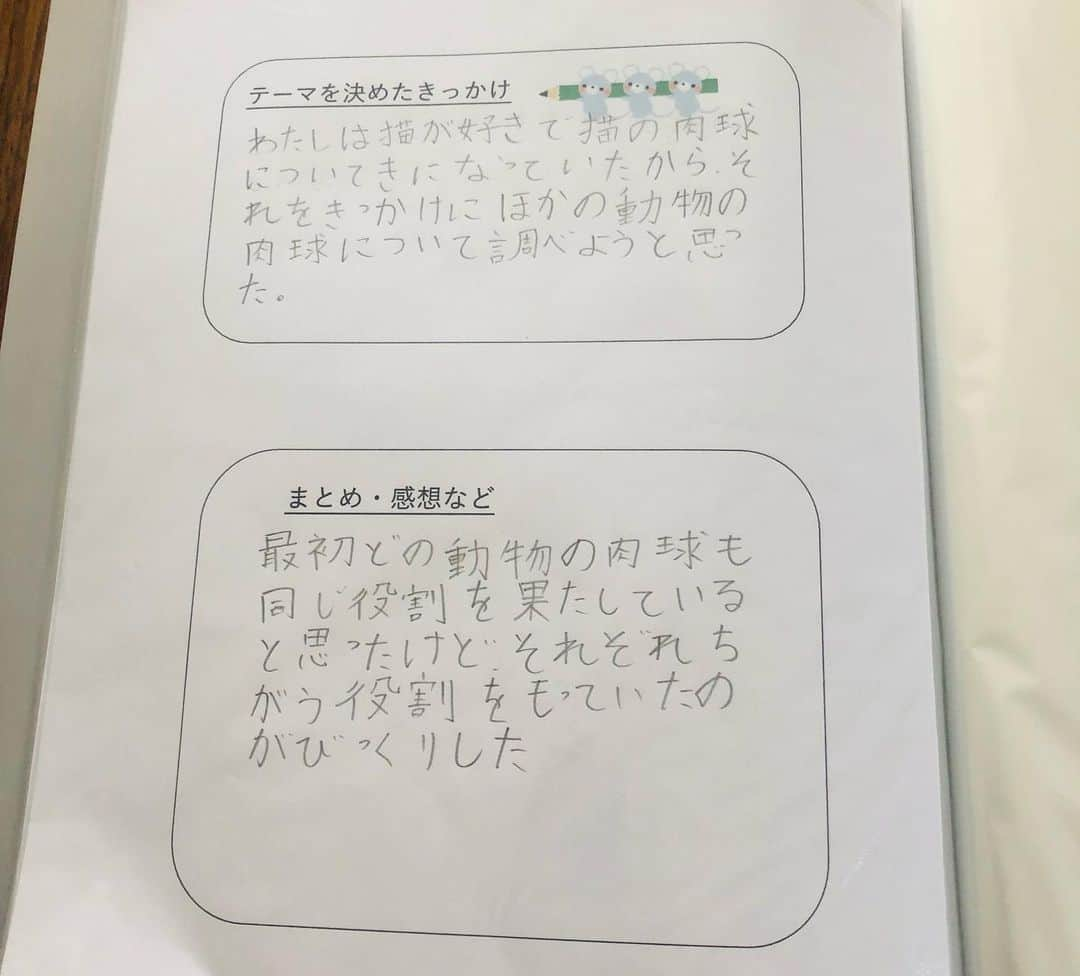 テーマを決めたきっかけ
わたしは描が好きで描の肉球
についてきになっていたから、そ
れをきっかけにほかの動物の
肉球について調べようと思っ
た。
まとめ・感想など
最初どの動物の肉球も
同じ役割を果たしている
と思ったけど、それぞれち
がう役割をもっていたの
がびっくりした